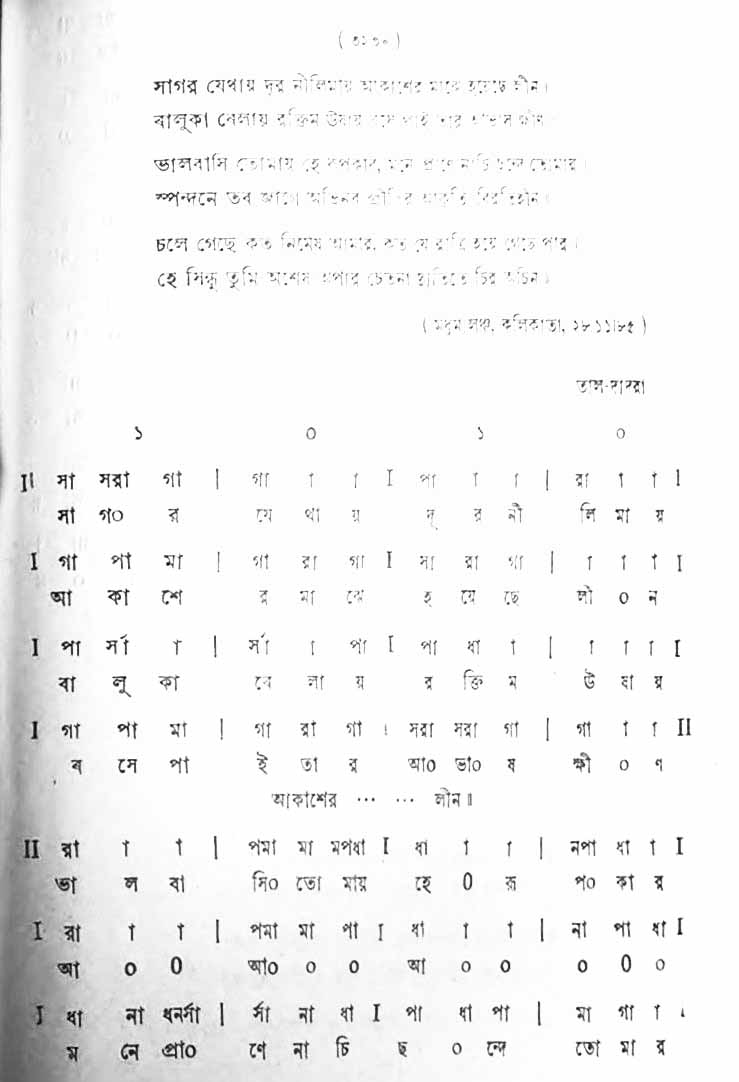 ( ৩২০০ )
সাগর যেথায় দূর নীলিমায় আকাশের মাঝে হয়েছে লীন।
বালুকা বেলায় রক্তিম উষায় বসে পাই তার আভাস ক্ষীণ
ভালবাসি তোমায় হে রূপকার, মনে প্রাণে নাচি ছন্দে তোমার।
স্পন্দনে তব জাগে অভিনব প্রীতির আকুতি বিরতিহীন।
চলে গেছে কত নিমেষ আমার, কত যে রাত্রি হয়ে গেছে পার।
হে সিন্ধু তুমি অশেষ অপার চেতনা দ্যুতিতে চির অচিন।
কলিকাতা, ২৮।১১।৮৫ )
তাল-দাদরা
১ ০ ১ ০
II সা সরা গা | গা া া I পা া া | রা া া I
সা গ০ র যে থা য় দূ র নী লি মা য়
I গা পা মা | গা রা গা I সা রা গা | া া া I
আ কা শে র মা ঝে হ য়ে ছে লী ০ ন
I পা র্সা া | র্সা া পা I পা ধা া | া া া I
বা লু কা বে লা য় র ক্তি ম উ ষা য়
I গা পা মা | গা রা গা । সরা সরা গা | গা া া II
ব সে পা ই তা র আ০ ভা০ ষ ক্ষী ০ ণ
আকাশের ... ... লীন॥
II রা া া | পমা মা মপধা I ধা া া | নপা ধা া I
ভা ল বা সি০ তো মায় হে 0 রূ প০ কা র
I রা া া | পমা মা পা I ধা া া | না পা ধা I
আ ০ 0 আ০ ০ ০ আ ০ ০ ০ 0 ০
I ধা না ধনর্সা | র্সা না ধা I পা ধা পা | মা গা া ।
ম নে প্রা০ ণে না চি ছ ০ ন্দে তো মা র